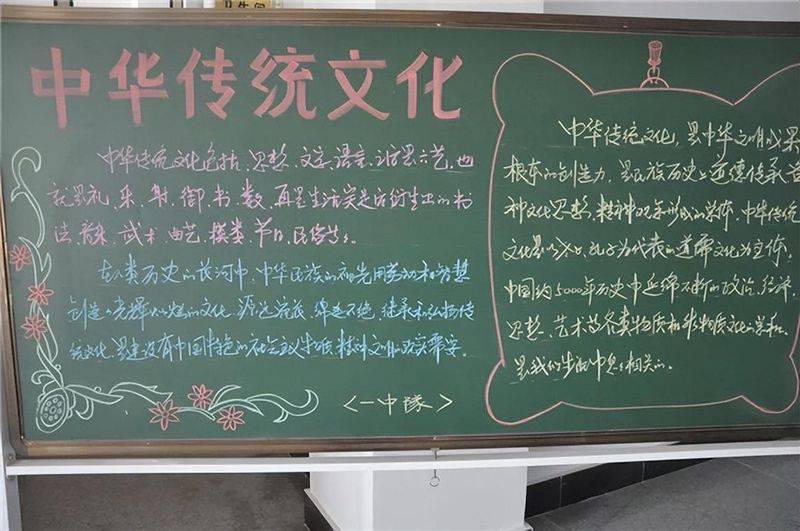 卫生间
中华传统文化
中华传统文化包括：思想、文字、语言、之后是六艺，也
就是礼、乐、射、御、书、数，再是生活富足后衍生出的书
法、音乐、武术、曲艺、棋类、节日、民俗等。
在人类历史的长河中，中华民族的祖先用劳动和智慧
创造了光辉灿烂的文化，源远流长，绵延不绝，继承和弘扬传
统文化，是建设有中国特色的社会主义物质、精神文明的现实需要。
<一中隊>
中华传统文化，是中华文明成果
根本的创造力，是民族历史上道德传承、各
种文化思想、精神观念形成的总体。中华传统
文化是以 孔子为代表的道儒文化为主体，
中国约5000年历史中延绵不断的政治、经济、
思想、艺术等各类物质和非物质文化的总和，
是我们生活中息息相关的。